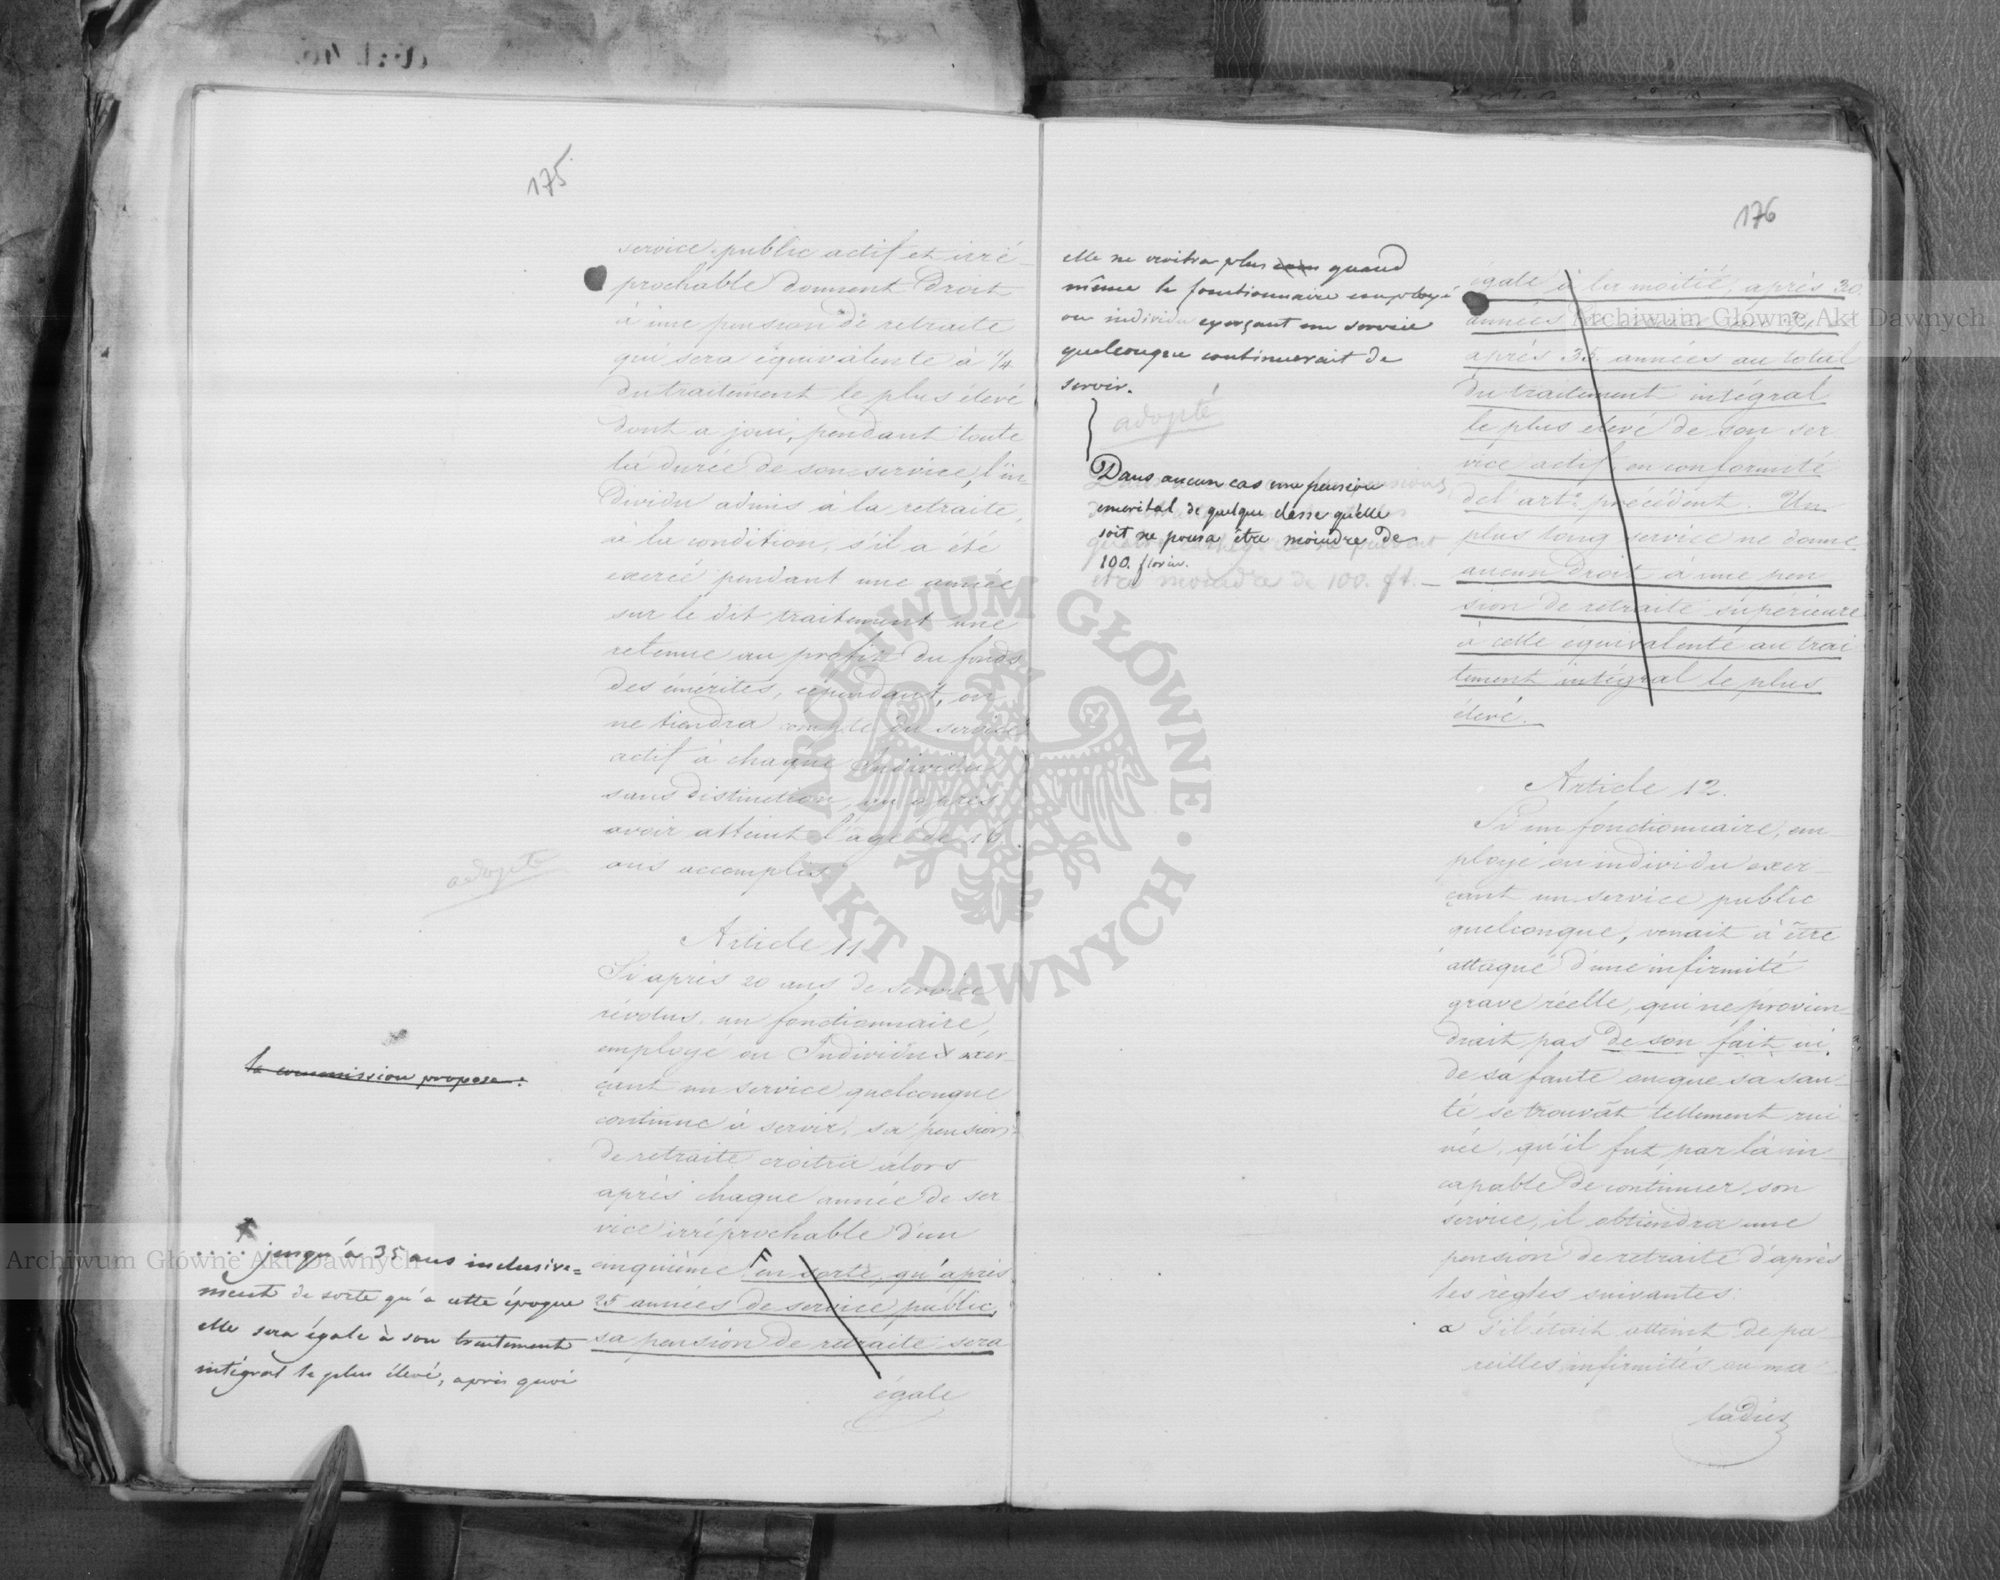 175
service public actif et irré-
prochable donnent droit
à une pension de retraite
qui sera équivalente à 1/4
du traitement le plus élevé
dont a joui, pendant toute
la durée de son service, l'in-
dividu admis à la retraite,
à la condition, s'il a été
exercé pendant une année
sur le dit traitement une
retenue au profit du fonds
des émérites, cependant, on
ne tiendra compte du service
actif à chaque Individu
sans distinction, qu'après
avoir atteint l'âge de 16
ans accomplis
adopté
Article 11
Si après 20 ans de service
révolus, un fonctionnaire,
employé ou Individu exer-
çant un service quelconque
continue à servir, sa pension
de retraite croitra alors
après chaque année de ser
vice irréprochable d'un
cinquième en sorte, qu'après
25 années de service public,
sa pension de retraite sera
égale
la commission propose:
..... jusqu'à 35 ans inclusive=
ment de sorte qu'à cette époque
elle sera égale à son traitement
intégral le plus élevé, après quoi
176
elle ne croitra plus quand
même le fonctionnaire employé
ou individu exerçant un service
quelconque continuerait de
servir.
adopté
Dans aucun cas une pension
emerital de quelque classe qu'elle
soit ne poura être moindre de
100. florins.
être moindre de 100. fl. —
égale à la moitié, après 30
années
après 35 années au total
du traitement intégral
le plus élevé de son ser
vice actif en conformité
de l'art. précédent. Un
plus long service ne donne
aucun droit à une pen
sion de retraite supérieure
à celle équivalente au trai
tement intégral le plus
élevé.
Article 12.
Si un fonctionnaire, em-
ployé ou individu exer-
çant un service public
quelconque, venait à être
attaqué d'une infirmité
grave réelle, qui ne provien-
drait pas de son fait, ni
de sa faute ou que sa san-
té se trouvât tellement rui
née, qu'il fut par là in-
capable de continuer son
service, il obtiendra une
pension de retraite d'après
les règles suivantes:
a s'il était atteint de pa
reilles infirmités ou ma
ladies
Archiwum Główne Akt Dawnych
Archiwum Główne Akt Dawnych
ARCHIWUM GŁÓWNE · AKT DAWNYCH ·